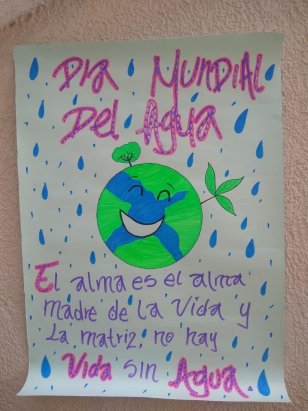 Dia Mundial
Del Agua
El alma es el alma
madre de la Vida y
La matriz, no hay
Vida sin Agua.